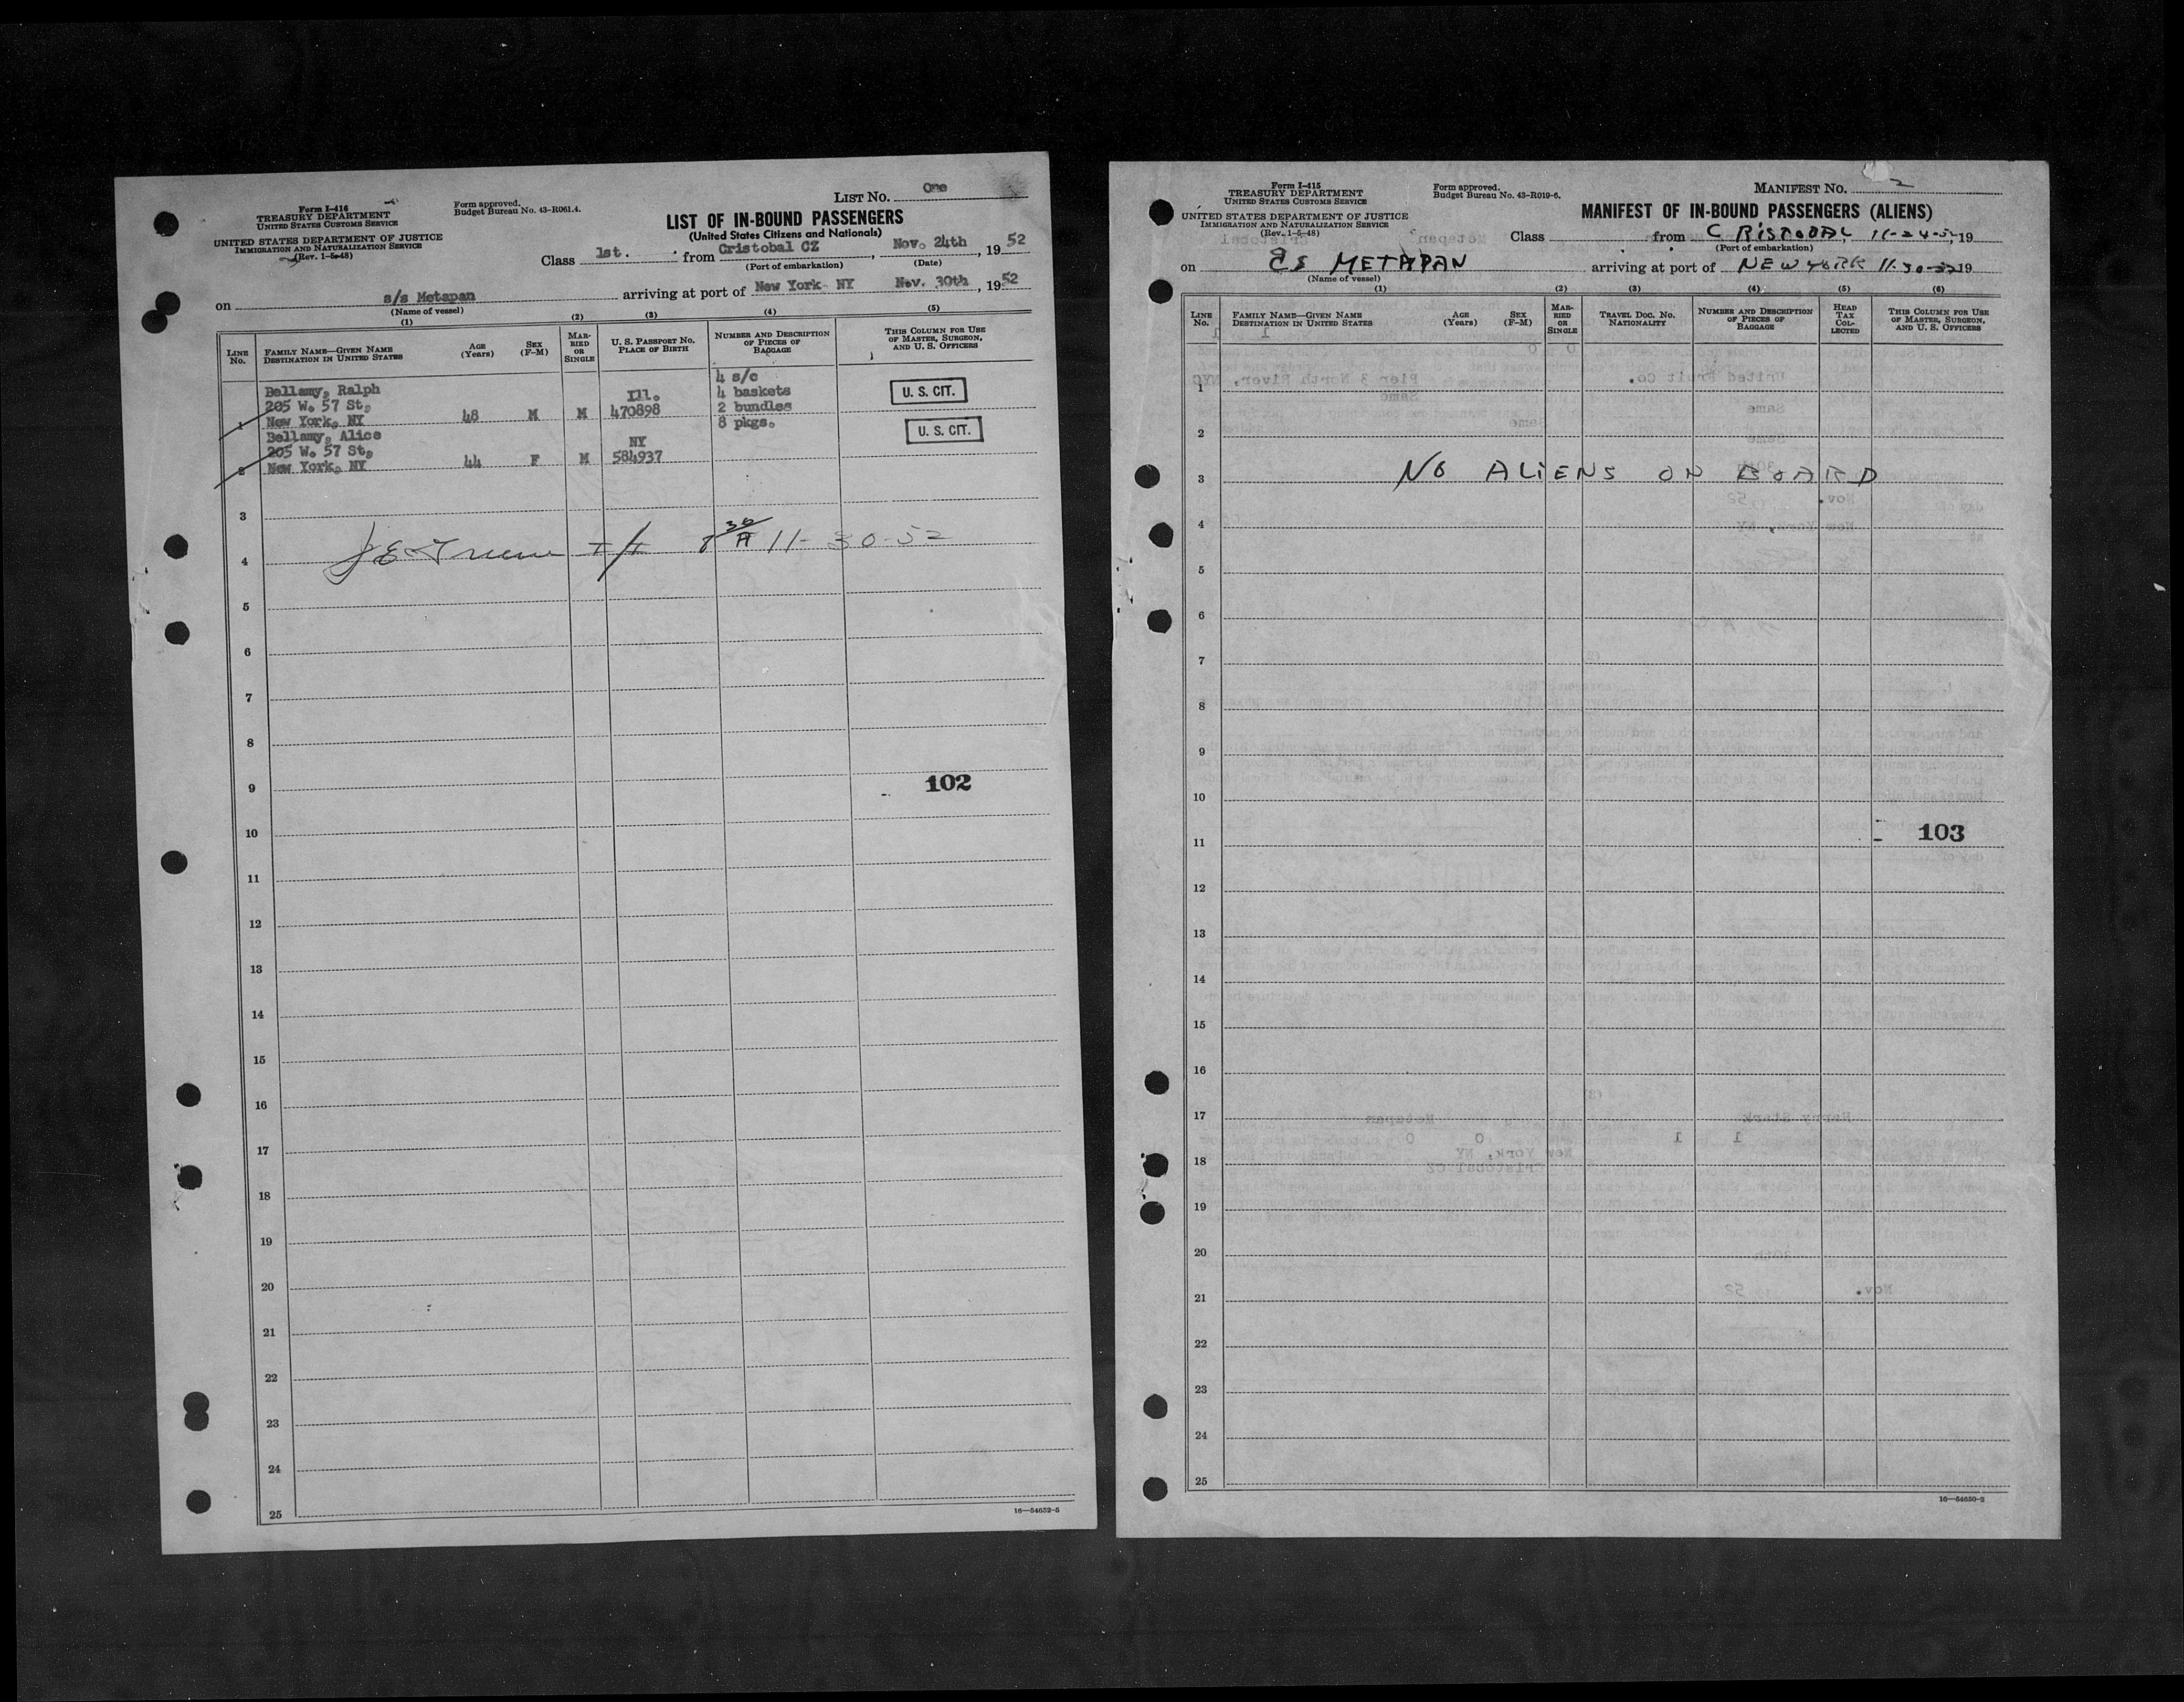 Form I-416
TREASURY DEPARTMENT
UNITED STATES CUSTOMS SERVICE
UNITED STATES DEPARTMENT OF JUSTICE
IMMIGRATION AND NATURALIZATION SERVICE
(Rev. 1-5-48)
Form approved.
Budget Bureau No. 43-R061.4.
LIST No. One
LIST OF IN-BOUND PASSENGERS
(United States Citizens and Nationals)
Class 1st. from Cristobal CZ, Nov. 24th, 1952
(Port of embarkation) (Date)
on s/s Metapan arriving at port of New York NY Nov. 30th, 1952
(Name of vessel)
(1) (2) (3) (4) (5)
LINE No.
FAMILY NAME—GIVEN NAME
DESTINATION IN UNITED STATES
AGE (Years)
SEX (F-M)
MARRIED OR SINGLE
U. S. PASSPORT No.
PLACE OF BIRTH
NUMBER AND DESCRIPTION OF PIECES OF BAGGAGE
THIS COLUMN FOR USE OF MASTER, SURGEON, AND U. S. OFFICERS
4 s/c
Bellamy, Ralph Ill. 4 baskets U. S. CIT.
205 W. 57 St, 48 M M 470898 2 bundles
1 New York, NY 8 pkgs.
Bellamy, Alice NY U. S. CIT.
205 W. 57 St, 44 F M 584937
2 New York, NY
3
8 30 A 11-30-52
4
5
6
7
8
9 102
10
11
12
13
14
15
16
17
18
19
20
21
22
23
24
25
16—54652-5
Form I-415
TREASURY DEPARTMENT
UNITED STATES CUSTOMS SERVICE
UNITED STATES DEPARTMENT OF JUSTICE
IMMIGRATION AND NATURALIZATION SERVICE
(Rev. 1-5-48)
Form approved.
Budget Bureau No. 43-R019-6.
MANIFEST No. 2
MANIFEST OF IN-BOUND PASSENGERS (ALIENS)
Class from CRISTOBAL, 11-24-52, 19
(Port of embarkation)
on SS METAPAN arriving at port of NEW YORK 11-30-52 19
(Name of vessel)
(1) (2) (3) (4) (5) (6)
LINE No.
FAMILY NAME—GIVEN NAME
DESTINATION IN UNITED STATES
AGE (Years)
SEX (F-M)
MARRIED OR SINGLE
TRAVEL DOC. No.
NATIONALITY
NUMBER AND DESCRIPTION OF PIECES OF BAGGAGE
HEAD TAX COLLECTED
THIS COLUMN FOR USE OF MASTER, SURGEON, AND U. S. OFFICERS
1
2
3 NO ALIENS ON BOARD
4
5
6
7
8
9
10
11 103
12
13
14
15
16
17
18
19
20
21
22
23
24
25
16—54650-2